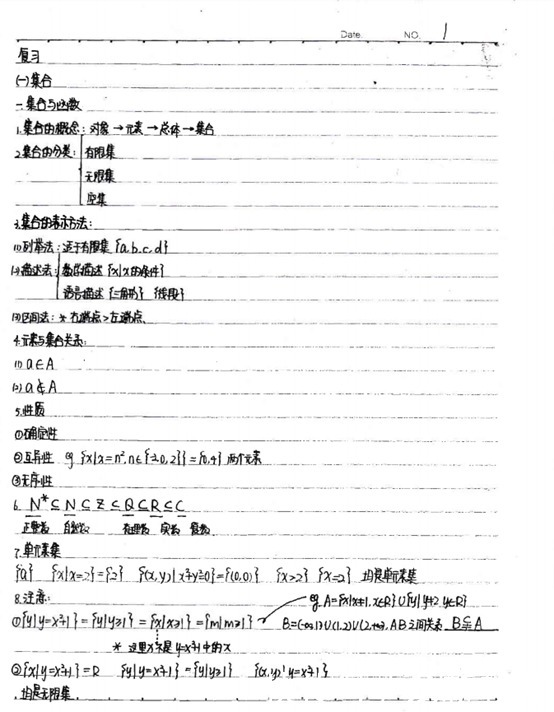 Date. NO. 1
复习
(一)集合
一.集合与函数
1.集合的概念：对象→元素→总体→集合
2.集合的分类：有限集
无限集
空集
3.集合的表示方法：
(1)列举法：适于有限集 {a,b,c,d}
(2)描述法：数学描述 {x|x的条件}
语言描述 {三角形} {线段}
(3)区间法：* 右端点>左端点.
4.元素与集合关系：
(1) a∈A
(2) a∉A
5.性质
①确定性
②互异性 eg {x|x=n²,n∈{-2,0,2}}={0,4} 两个元素
③无序性
6. N*⊆N⊆Z⊆Q⊆R⊆C
正整数 自然数 有理数 实数 复数
7.单元素集
{a} {x|x=2}={2} {(x,y)|x²+y²=0}={(0,0)} {x>2} {x=2} 均是单元素集
8.注意：
eg. A={x|x≠1,x∈R}∪{y|y≠2,y∈R}
①{y|y=x²+1}={y|y≥1}={x|x≥1}={m|m≥1} B=(-∞,1)∪(1,2)∪(2,+∞), A B之间关系 B⫋A
* 这里x不是 y=x²+1中的x
②{x|y=x²+1}=R {y|y=x²+1}={y|y≥1} {(x,y)|y=x²+1}
均是无限集.